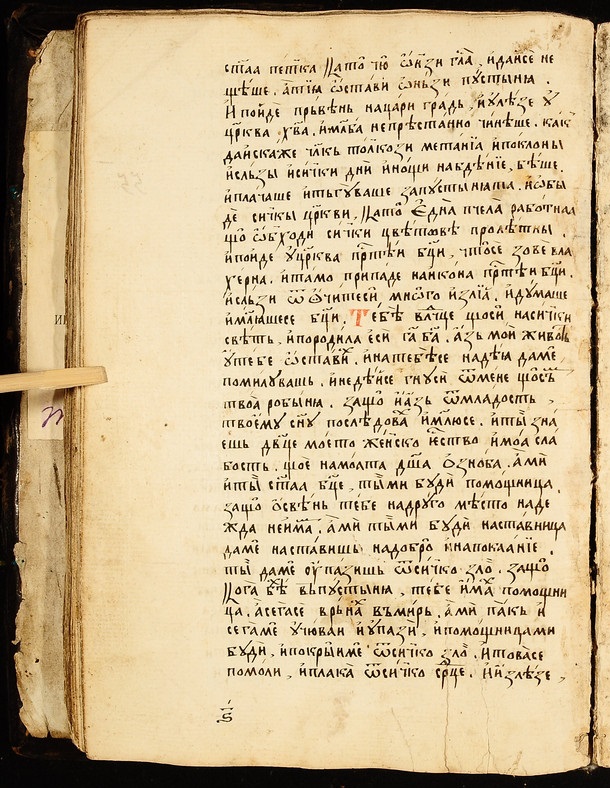 ст҃аа петка като чю ѡнзи гла҄, и дайсе не
щѣше. а҆гг҃лꙗ ѡстави ѡньзи пꙋстынꙗ
и пойде прьвѣнь на цари градь, и улѣзе ꙋ
цр҃ква хв҃а. и мл҃ба непрѣстан̾но чинѣше. како
да искаже чл҃кь толкози метанїа и поклоны
и сльзы и сичкы дни и нощи на бденїе, бѣше.
и плачаше и тьгꙋваше за пꙋстынꙗта. и ѡбы
де сичкы цр҃кви. като една пчела работнаа
що ѡбходи сички цвѣтове пролѣтны.
и пойде ꙋ цр҃ква прⷭ҇тѣи бц҃и, чтосе зове вла
хе҆рна. и тамо припаде на икона прⷭ҇тѣи бц҃и.
и сльзи ѿ ѡчитеси много излїа. и дꙋмаше
и млꙗшесе бц҃и. Тебѣ влⷣчце що си на сички
свѣть, и породила еси га҃ ба҃. азь мой живо҆ть
ꙋ тебе ѡставихь. и на тебѣсе надѣꙗ даме
помилꙋвашь, и недѣисе гнꙋси ѿ мене що съмь
твоа робынꙗ. защо и азь ѿ младость,
твоемꙋ сн҃ꙋ последовахь и млюсе. и ты зна
ешь дв҃це моето женско естьство и моа сла
бость. що е на молта дш҃а ѡзноба. ами
и ты ст҃аа бц҃е, ты ми бꙋди помощница
защо освѣнь тебе на дрꙋго мѣсто наде
жда неимамь. ами ты ми бꙋди наставница
да ме наставишь на добро и на покаанїе.
ты да ме оупазишь ѿ сичко зло. защо
кога бѣхь вьпꙋстынꙗ, тебе имахь помощни
ца. а сегасе врьнахь вьмирь. ами пакь и
сегаме ꙋчювай и ꙋпази, и помощница ми
бꙋди, и покрыи ме ѿ сичко зло. и товасе
помоли, и плака ѿ сичко срⷣце. и излѣзе,
ѕ҃і